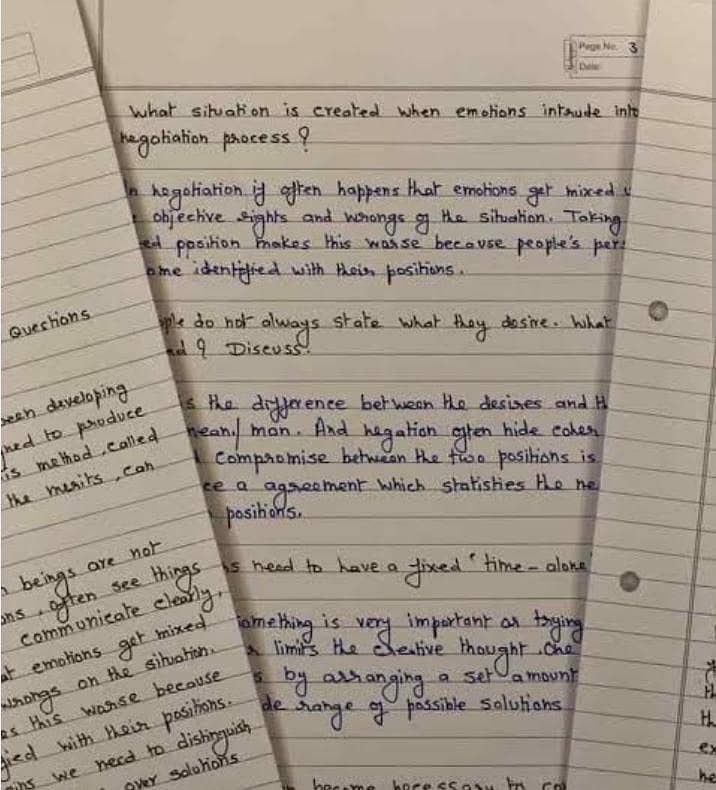 Page No. 3
Date:
What situation is created when emotions intrude into
negotiation process ?
In negotiation it often happens that emotions get mixed
objective rights and wrongs of the situation. Taking
position makes this worse because people's
identified with their positions.
do not always state what they desire. What
? Discuss.
is the difference between the desires and
mean/ man. And negation often hide
Compromise between the two positions is
a agreement which statisties the
positions.
need to have a fixed "time - alone"
Something is very important as trying
limits the creative thought. One
by arranging a set amount
range of possible solutions
become necessary to
Questions
been developing
to produce
is method, called
the merits, can
beings are not
often see things
communicate clearly,
emotions get mixed
wrongs on the situation.
this worse because
with their positions.
we need to distinguish
over solutions